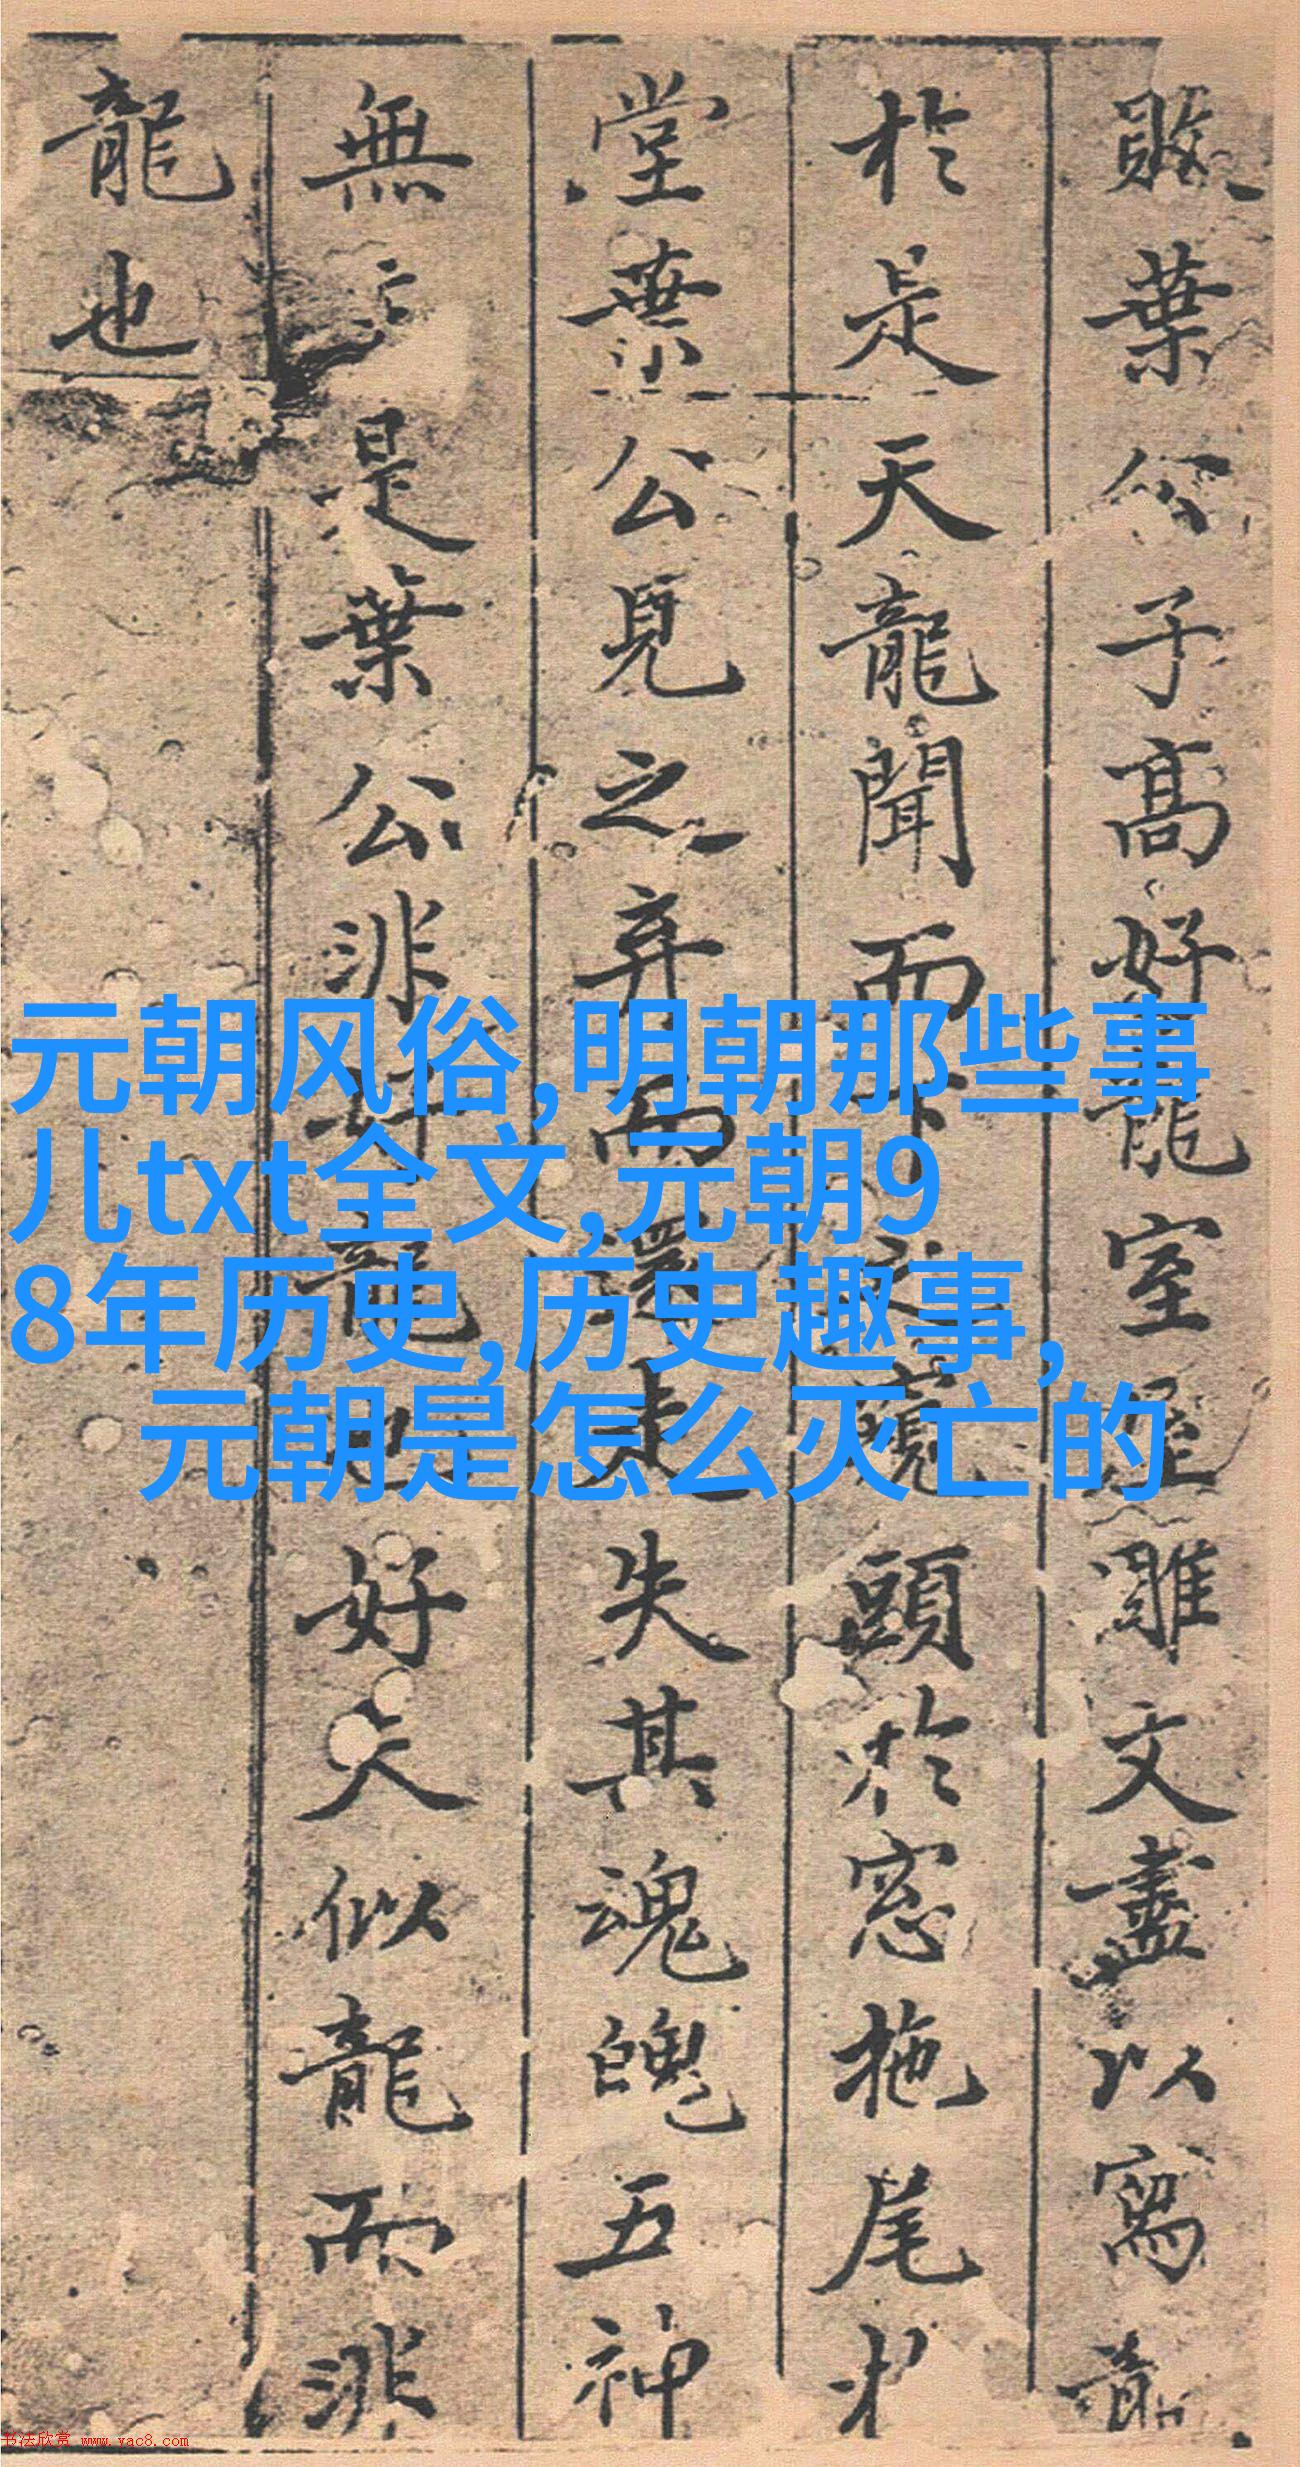 敗葉公子高好龍室屋雕文盡以寫龍
於是天龍聞而下之窺頭於窓拖尾於
堂葉公見之弃而還走失其魂魄五神
無主是葉公非好龍也好夫似龍而非
龍也
元朝风俗,明朝那些事
儿txt全文,元朝9
8年历史,历史趣事,
元朝是怎么灭亡的
书法欣赏 www.yac8.com